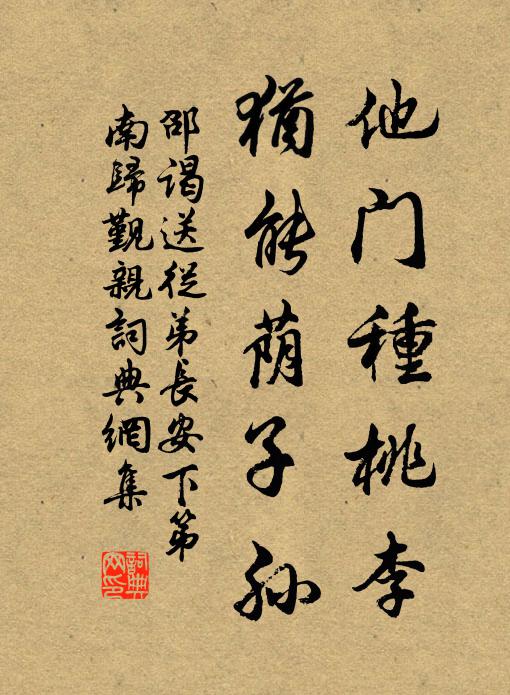 他门種桃李
猶能荫子孙
邵谒送從弟長安下第
南歸觐親詞典網集
詞典网印